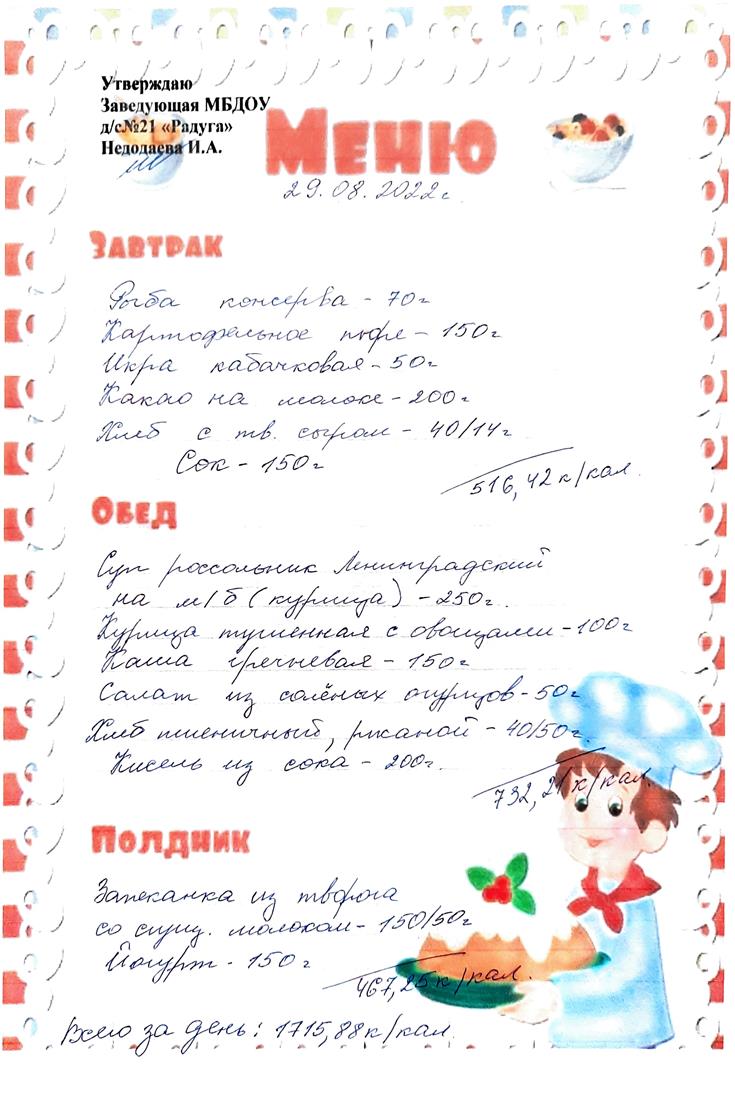 Утверждаю
Заведующая МБДОУ
д/с№21 «Радуга»
Недодаева И.А.
Меню
29.08.2022г.
Завтрак
Рыба консерва - 70г
Картофельное пюре - 150г
Икра кабачковая - 50г
Какао на молоке - 200г
Хлеб с тв. сыром - 40/14г
Сок - 150г
516,42 к/кал.
Обед
Суп россольник Ленинградский
на м/б (курица) - 250г.
Курица тушенная с овощами - 100г
Каша гречневая - 150г
Салат из солёных огурцов - 50г
Хлеб пшеничный, ржаной - 40/50г.
Кисель из сока - 200г.
732,21 к/кал.
Полдник
Запеканка из творога
со сгущ. молоком - 150/50г
Йогурт - 150г
467,25 к/кал.
Всего за день: 1715,88 к/кал.